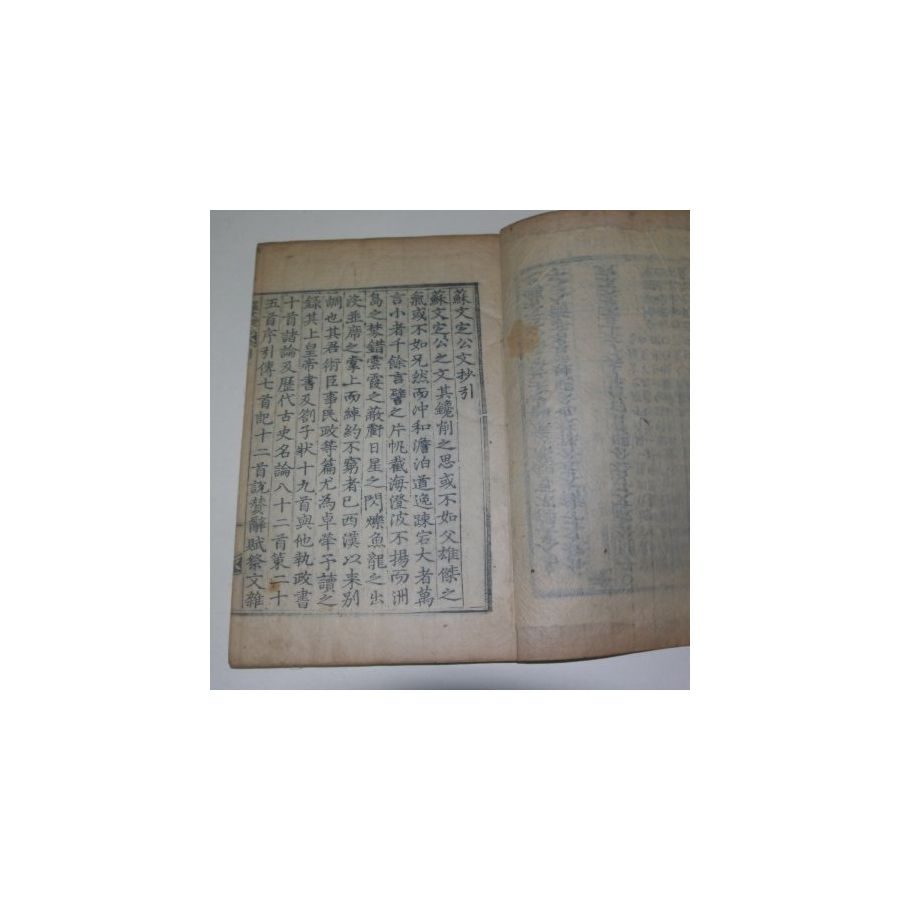 蘇文定公文抄引
蘇文定公之文其鑱削之思或不如父雄傑之
氣或不如兄然而沖和澹泊遒逸疎宕大者萬
言小者千餘言譬之片帆截海澄波不揚而洲
島之棼錯雲霞之蔽虧日星之閃爍魚龍之出
沒並席之掌上而綽約不窮者已西漢以来别
調也其君術臣事民政等篇尤為卓犖予讀之
録其上皇帝書及劄子狀十九首與他執政書
十首諸論及歷代古史名論八十二首策二十
五首序引傳七首記十二首説贊辭賦祭文雜